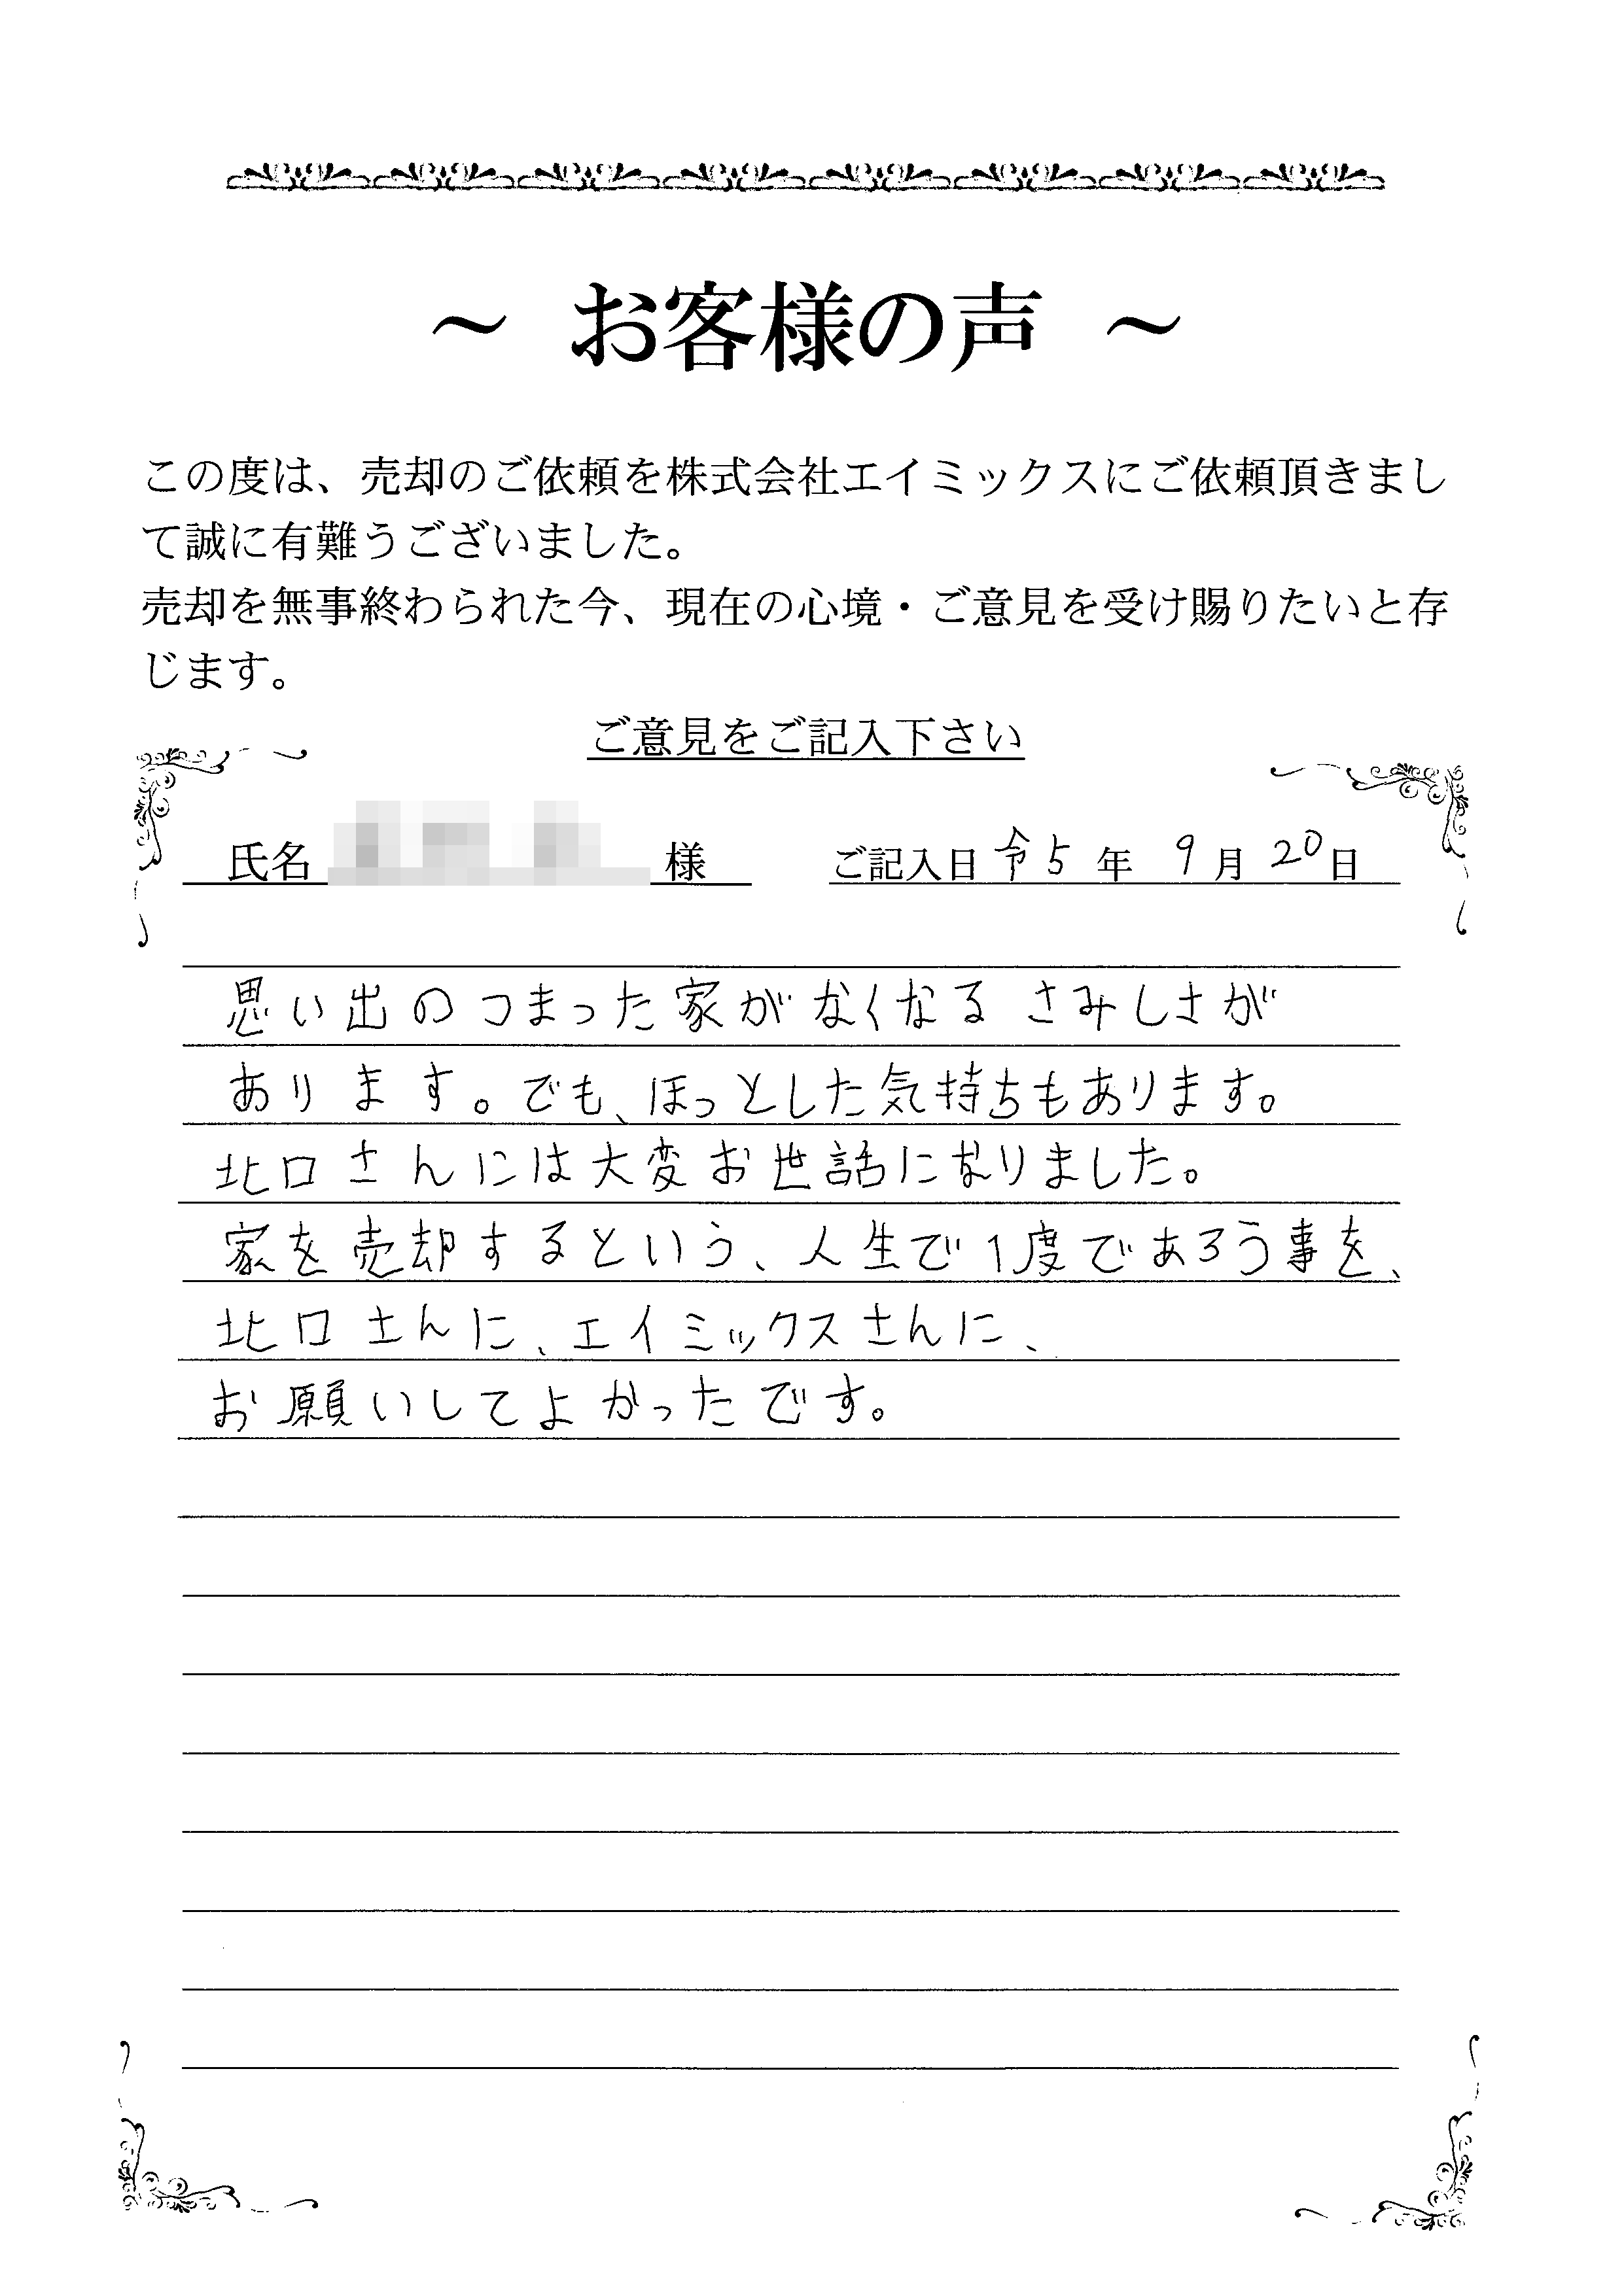 ～ お客様の声 ～
この度は、売却のご依頼を株式会社エイミックスにご依頼頂きまし
て誠に有難うございました。
売却を無事終わられた今、現在の心境・ご意見を受け賜りたいと存
じます。
ご意見をご記入下さい
氏名 様 ご記入日 令5年 9月 20日
思い出のつまった家がなくなる さみしさが
あります。でも、ほっとした気持ちもあります。
北口さんには大変お世話になりました。
家を売却するという、人生で1度であろう事を、
北口さんに、エイミックスさんに、
お願いしてよかったです。